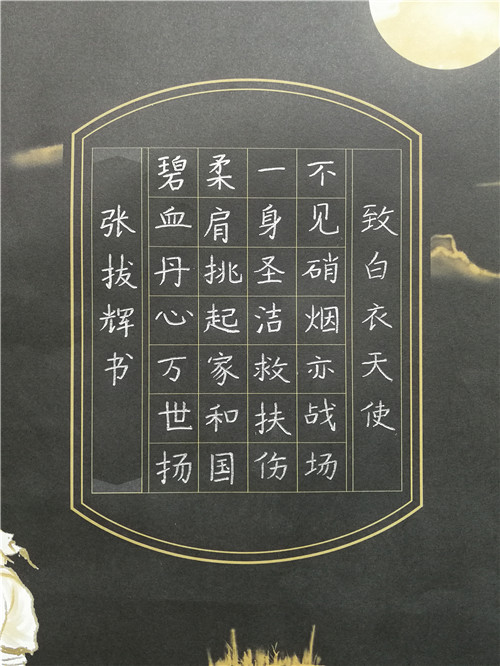 致白衣天使
不见硝烟亦战场
一身圣洁救扶伤
柔肩挑起家和国
碧血丹心万世扬
张拔辉书